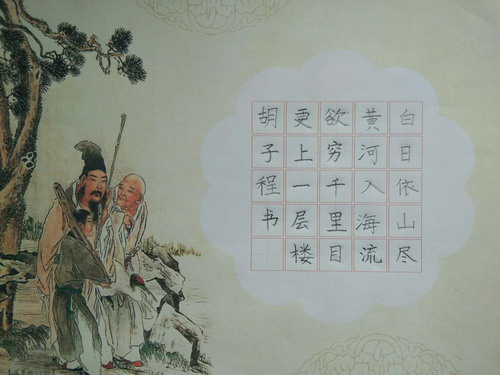 白日依山尽
黄河入海流
欲穷千里目
更上一层楼
胡子程书